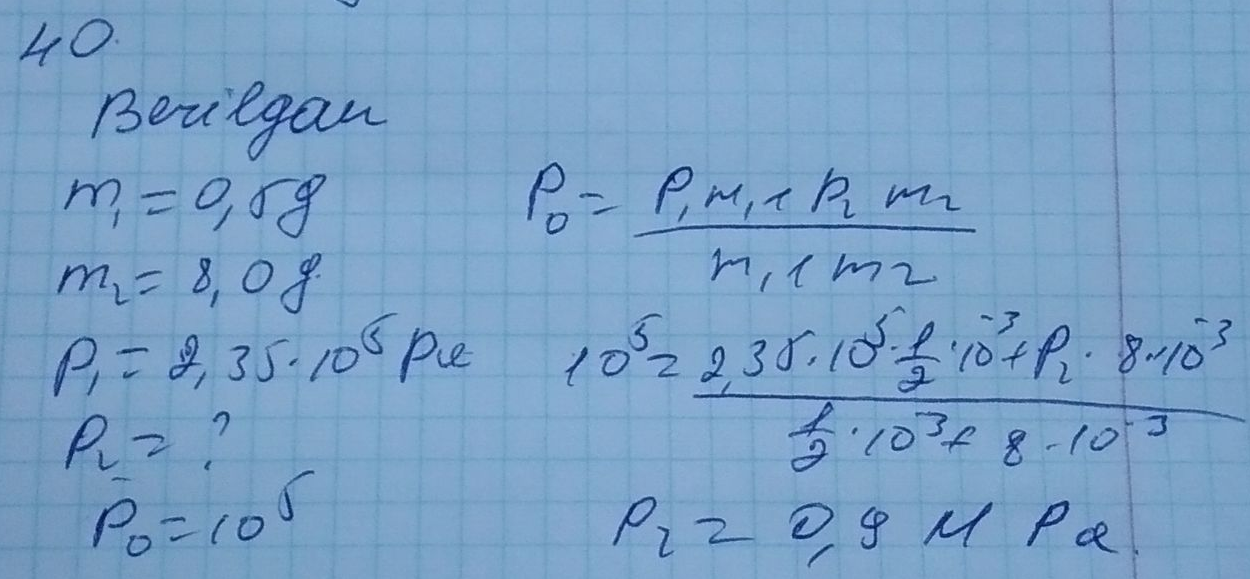 40.
Berilgan
m₁ = 0,5g
m₂ = 8,0g
P₁ = 2,35·10⁵ Pa
P₂ = ?
P₀ = 10⁵
P₀ = (P₁m₁ + P₂m₂) / (m₁ + m₂)
10⁵ = (2,35·10⁵·1/2·10⁻³ + P₂·8·10⁻³) / (1/2·10⁻³ + 8·10⁻³)
P₂ = 0,9 M Pa